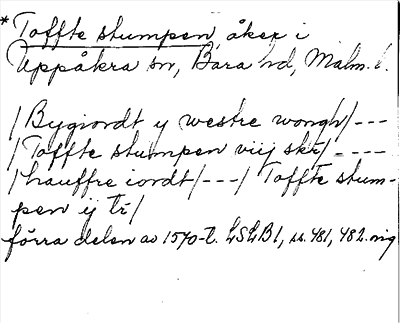 * Toffte stumpen, åker i
Uppåkra sn, Bara hd, Malm. l.
/Bygiordt y westre wongh/---
/Toffte stumpen viij skr/----
/hauffre iordt/---/ Toffte stum-
pen ij tr/
förra delen av 1570-t. LSLB1, ss. 481, 482. nig